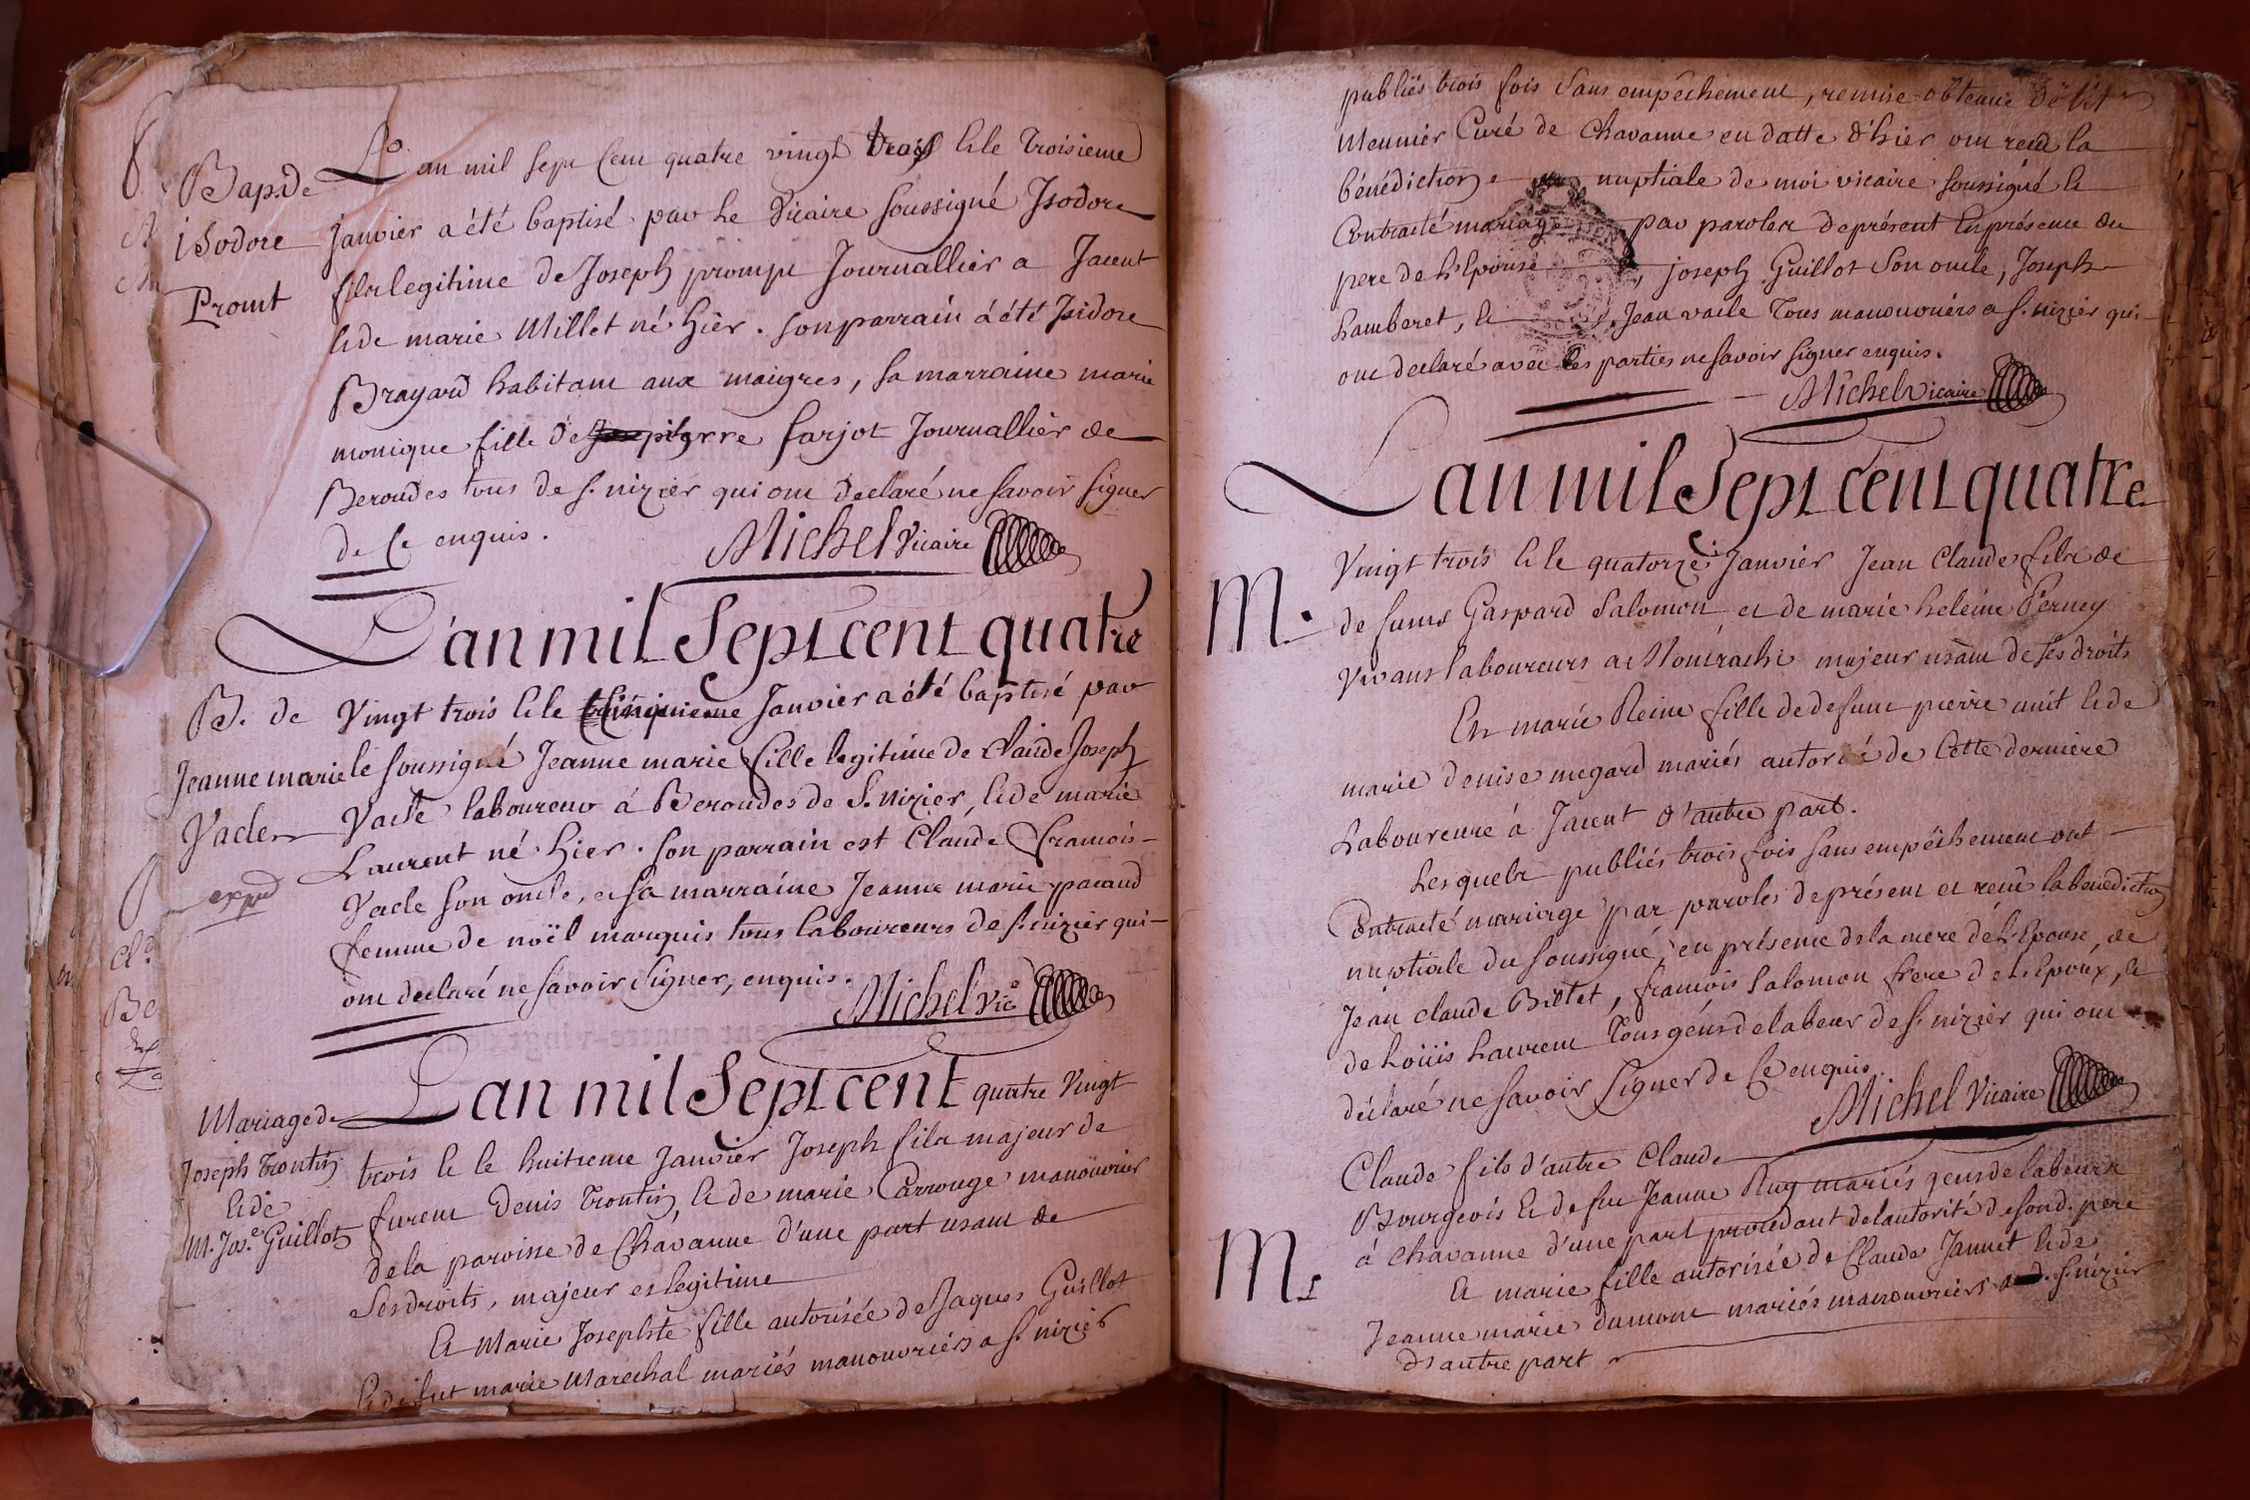 Bap. de
isodore
Promt
L'an mil sept cent quatre vingt trois & le troisieme
janvier a été baptisé par le vicaire soussigné Isodore
fils legitime de Joseph prompt Journallier a Jacent
& de marie Millet né hier. son parrain a été Isidore
Brayard habitant aux maigres, sa marraine marie
monique fille de pierre farjot Journallier de
Beroudes tous de st. nizier qui ont declaré ne savoir signer
de ce enquis.
Michel Vicaire
L'an mil Sept cent quatre
B. de
Jeanne marie
Vacle
exped
Vingt trois & le cinquieme Janvier a été baptisé par
le soussigné Jeanne marie fille legitime de Claude Joseph
Vacle laboureur á Beroudes de St. nizier, & de marie
Laurent né hier. son parrain est Claude francois
Vacle son oncle, & sa marraine Jeanne marie pacaud
femme de noël marquis tous laboureurs de st. nizier qui
ont declaré ne savoir signer, enquis.
Michel Vic.e
L'an mil Sept cent quatre Vingt
Mariage de
Joseph Trontin
& de
M. Jos.e Guillot
trois & le huitieme Janvier Joseph fils majeur de
furent Denis Trontin & de marie Carrouge manouvrier
de la paroisse de Chavanne d'une part usant de
ses droits, majeur et legitime
Et Marie Josephte fille autorisée de Jaques Guillot
& de fut marie Marechal mariés manouvriers a st. nizier
publiés trois fois sans empêchement, remise obtenue de
Meunier Curé de Chavanne en datte d'hier ont recu la
bénédiction nuptiale de moi vicaire soussigné &
Contracté mariage par paroles de présent en présence du
pere de l'Epouse, joseph Guillot son oncle, Joseph
Lamberet, & Jean vacle Tous manouvriers a st. nizier qui
ont declaré avec les parties ne savoir signer enquis.
Michel Vicaire
L'an mil Sept cent quatre
M.
Vingt trois & le quatorze Janvier Jean Claude fils de
de Gaspard Salomon et de marie heleine Perney
Vivans laboureurs a majeur usant de ses droits
Et marie Reine fille de defunt pierre & de
marie denise megard mariés autorisé de cette derniere
Laboureure á Jacent d'autre part.
Lesquels publiés trois fois sans empêchement ont
Contracté mariage par paroles de présent et recu la benediction
nuptiale du soussigné, en présence de la mere de l'Epouse, de
Jean claude Billet, francois Salomon frere de l'Epoux, &
de Loüis Laurent Tous géns de labeur de st. nizier qui ont
déclaré ne savoir Signer de Ce enquis.
Michel Vicaire
M.
Claude fils d'autre Claude
Bourgeois & de fue Jeanne Ruy mariés gens de labeur
á Chavanne d'une part procédant de l'autorité de sond. pere
Et marie fille autorisée de Claude Jannet & de
Jeanne marie dumont mariés manouvriers aud. st. nizier
d'autre part